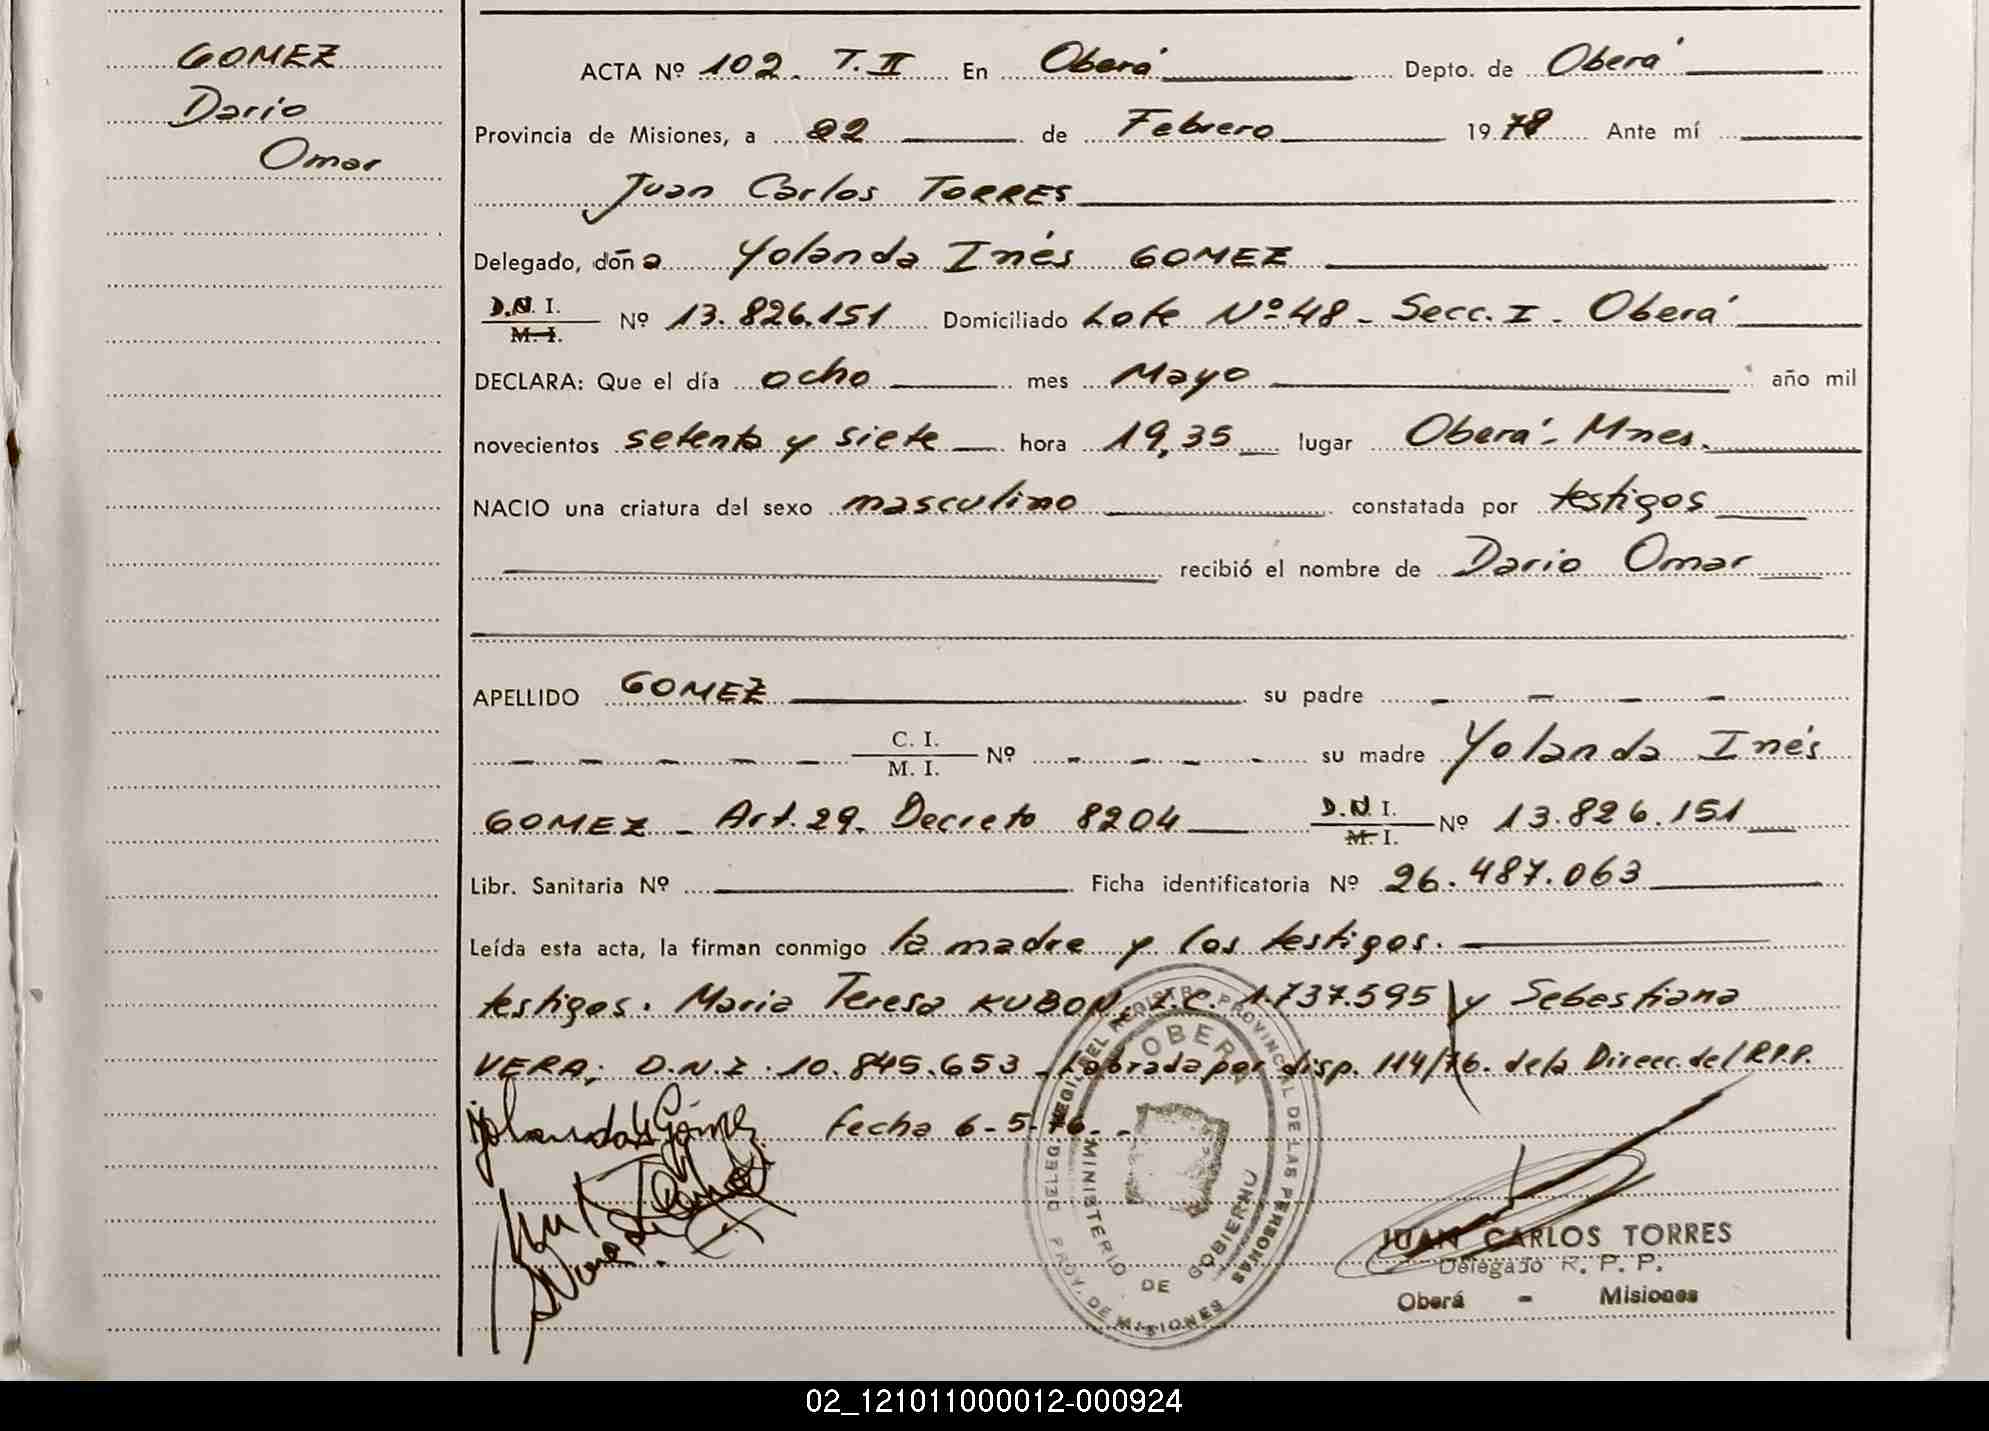 GOMEZ
Dario
Omar
ACTA Nº 102. T. II En Oberá Depto. de Oberá
Provincia de Misiones, a 22 de Febrero 1978 Ante mí
Juan Carlos TORRES
Delegado, doña Yolanda Inés GOMEZ
D.N.I.
M. I. Nº 13.826.151 Domiciliado Lote Nº 48 - Secc. I - Oberá
DECLARA: Que el día ocho mes Mayo año mil
novecientos setenta y siete hora 19,35 lugar Oberá - Mnes.
NACIO una criatura del sexo masculino constatada por testigos
recibió el nombre de Dario Omar
APELLIDO GOMEZ su padre - - - -
- - - - - C. I.
M. I. Nº - - - - su madre Yolanda Inés
GOMEZ - Art. 29. Decreto 8204 D.N.I.
M. I. Nº 13.826.151
Libr. Sanitaria Nº Ficha identificatoria Nº 26.487.063
Leída esta acta, la firman conmigo la madre y los testigos.
testigos. Maria Teresa KUBON, L.C. 1.737.595 y Sebestiana
VERA; D.N.I. 10.845.653 - Labrada por disp. 114/76. de la Direcc. del R.P.P.
fecha 6-5-76. -
DELEG. DEL REGISTRO PROVINCIAL DE LAS PERSONAS
OBERA
MINISTERIO DE GOBIERNO
PROV. DE MISIONES
JUAN CARLOS TORRES
Delegado R. P. P.
Oberá - Misiones
02_121011000012-000924